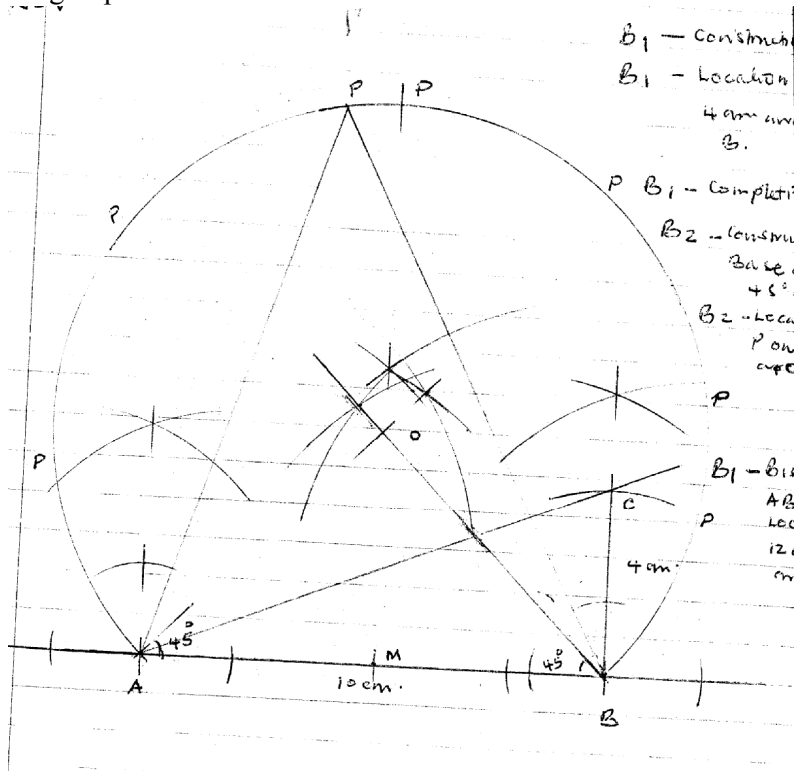 B1 — Construct
B1 - Location
4 cm
B.
P P
P B1 - Completi
P
B2 - Constru
Base
45°
B2 - Loca
P on
P
O
P
B1 - Bis
AB
C
Loc
P
4 cm.
45°
45°
M
A
10 cm.
B